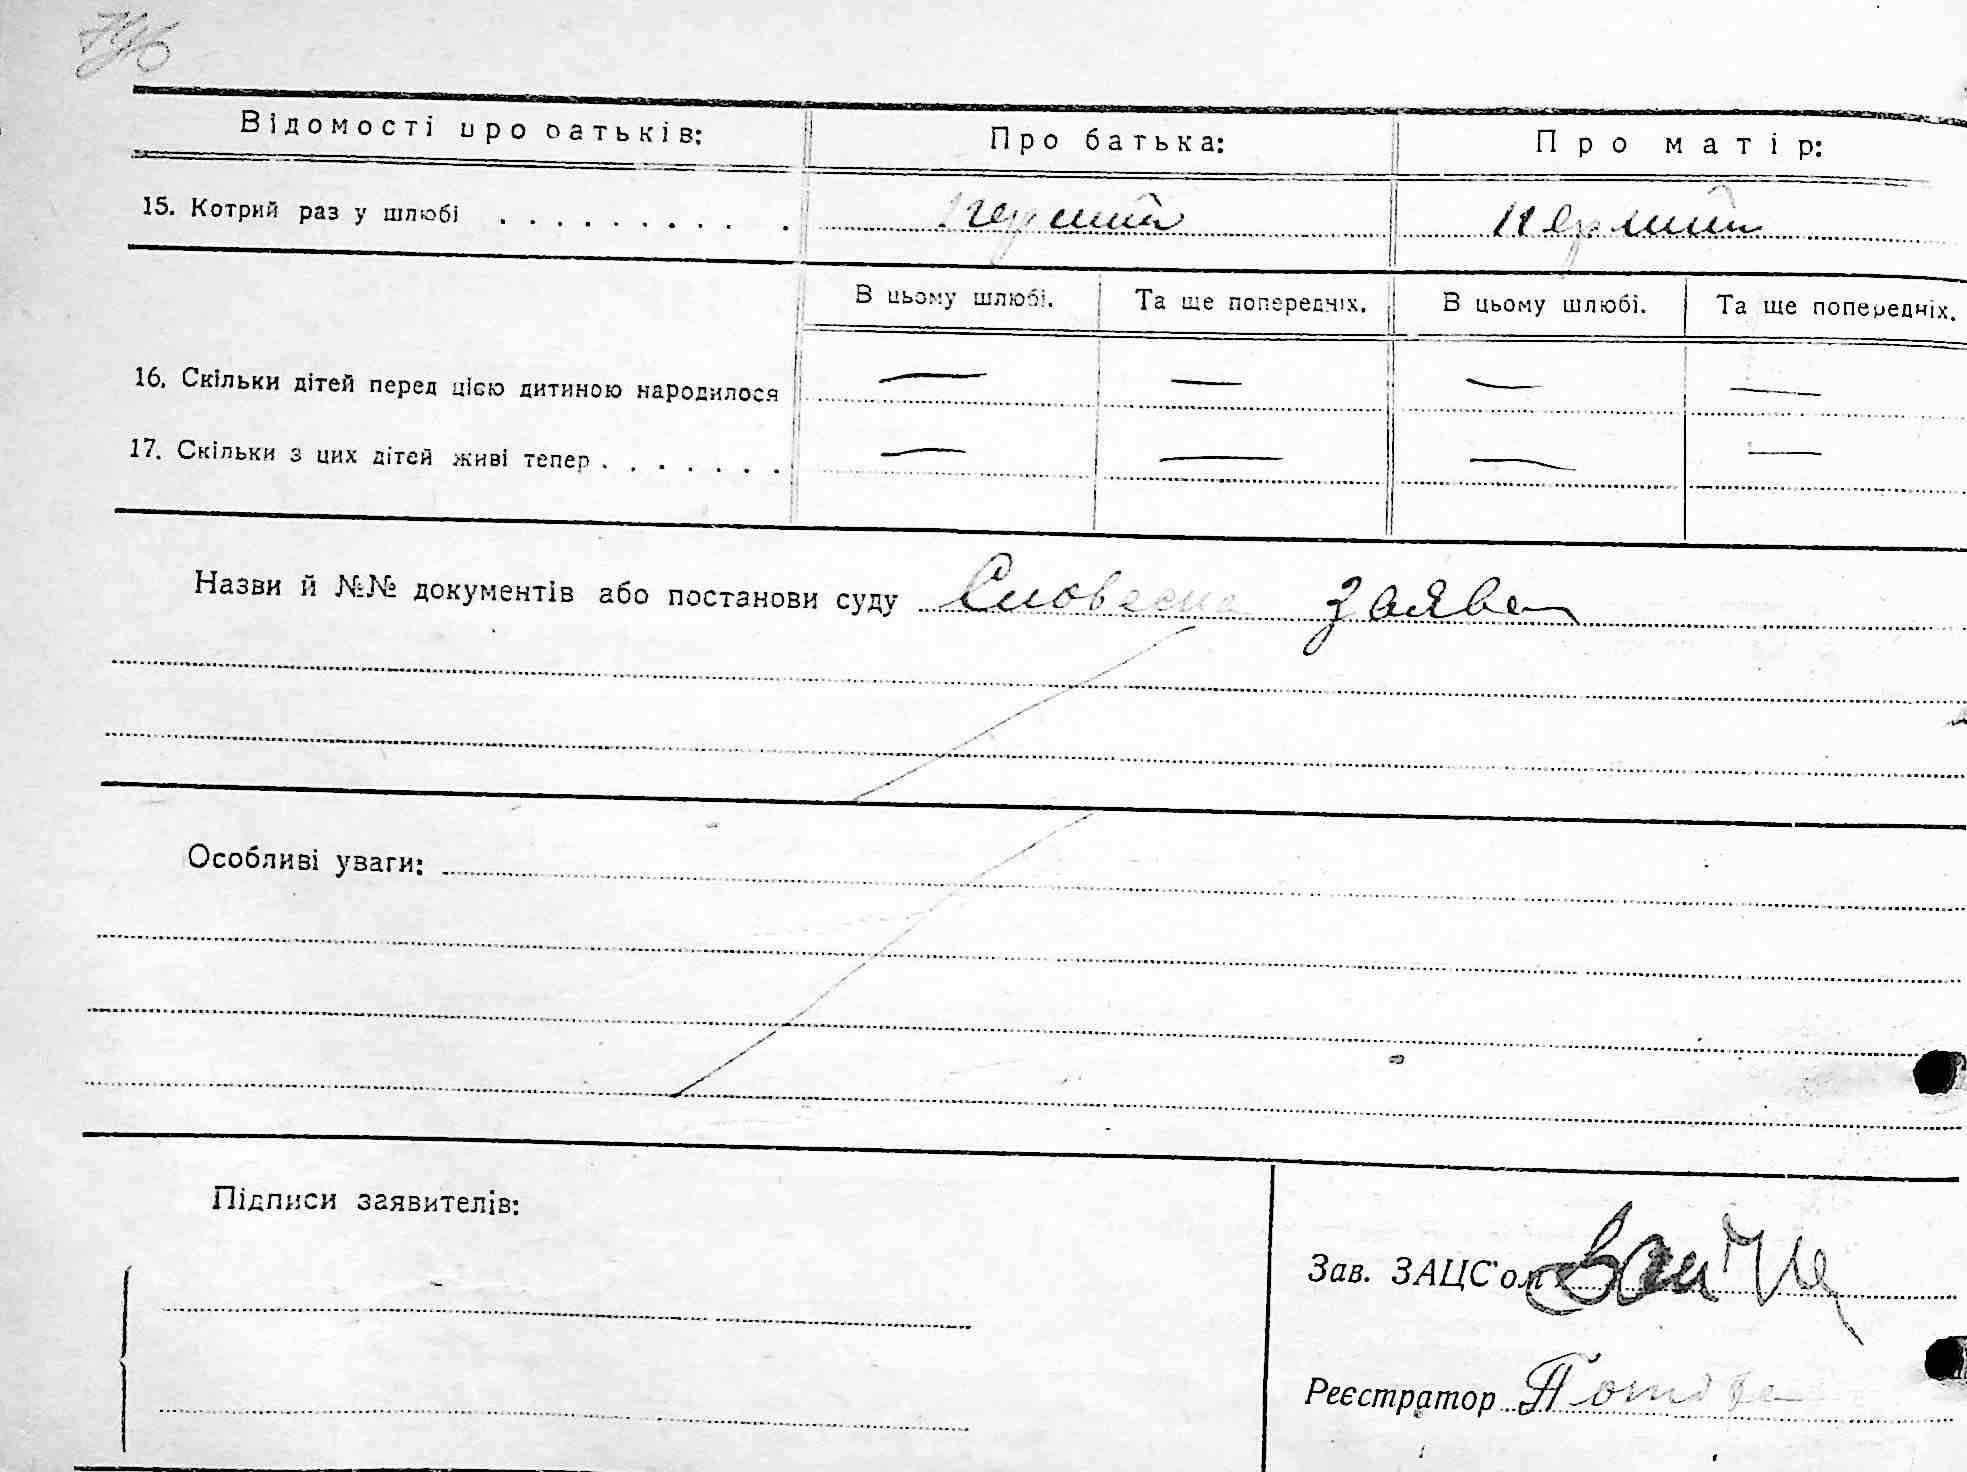 796
Відомості про батьків: Про батька: Про матір:
15. Котрий раз у шлюбі . . . . . . . . . . перший перший
В цьому шлюбі. Та ще попередніх. В цьому шлюбі. Та ще попередніх.
16. Скільки дітей перед цією дитиною народилося — — — —
17. Скільки з цих дітей живі тепер . . . . . . . — — — —
Назви й №№ документів або постанови суду Словесна заява
Особливі уваги:
Підписи заявителів:
Зав. ЗАЦС'ом
Реєстратор